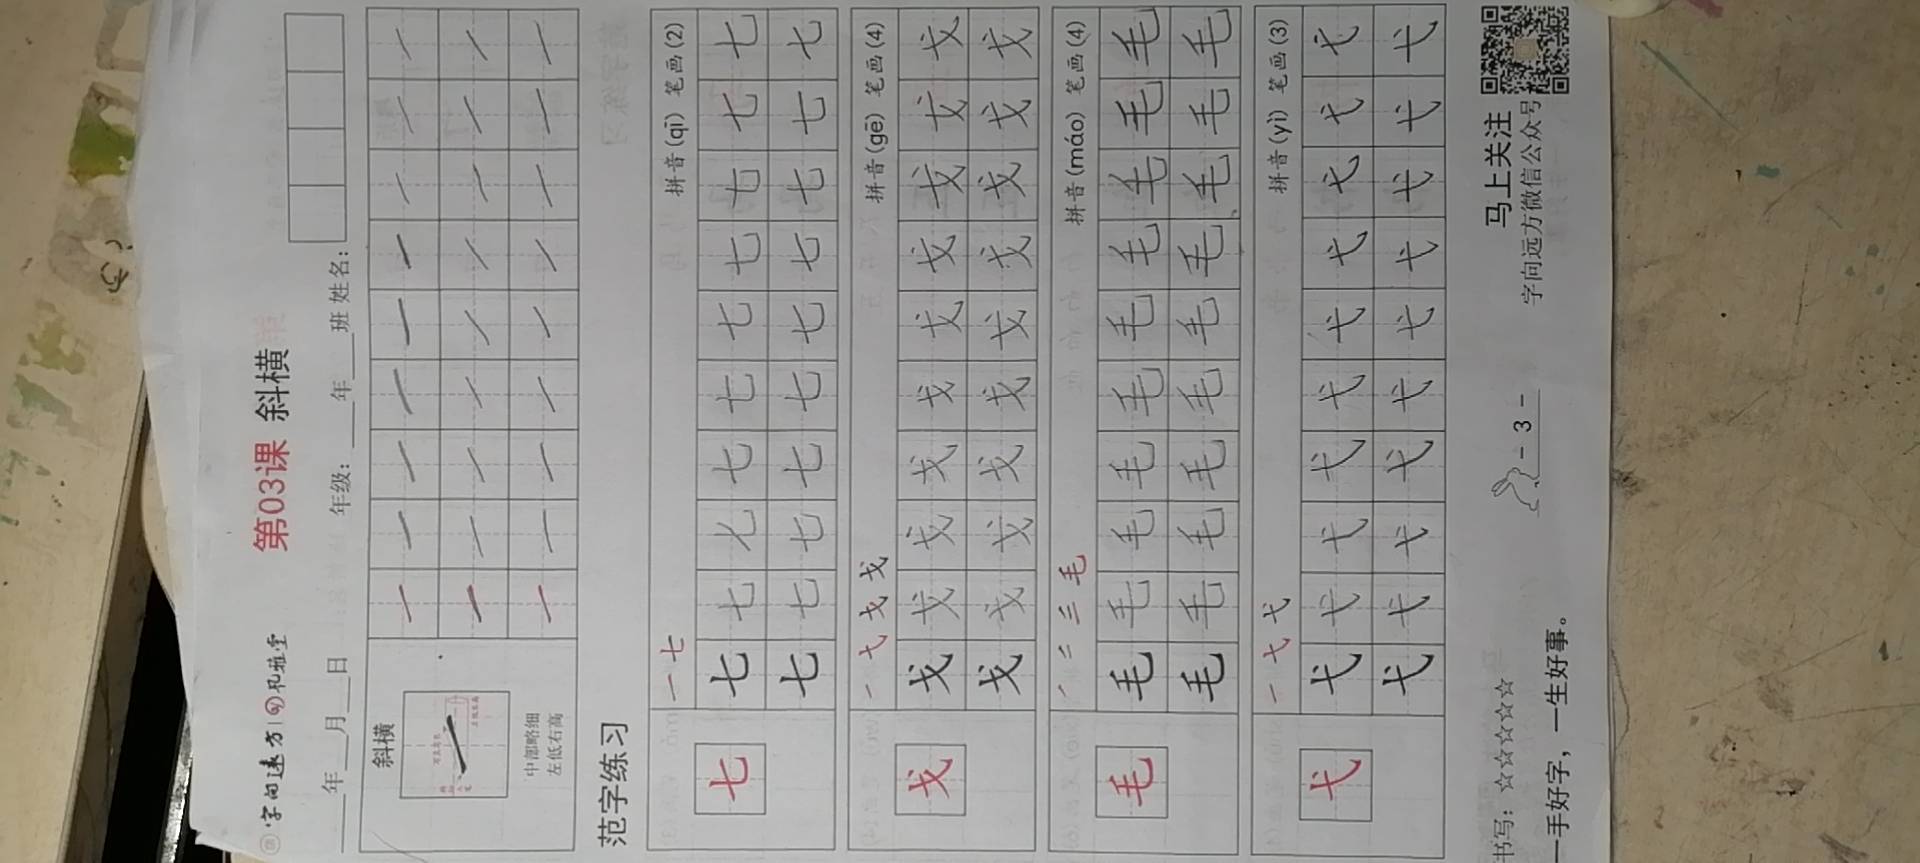 字向远方|孔雅堂
第03课 斜横
___年___月___日 年级:___年___班 姓名:
斜横
中部略细
左低右高
范字练习
一 七 拼音(qī) 笔画(2)
七 七 七 七 七 七 七 七 七 七 七
七 七 七 七 七 七 七 七 七 七
一 弋 戈 戈 拼音(gē) 笔画(4)
戈 戈 戈 戈 戈 戈 戈 戈 戈 戈 戈
戈 戈 戈 戈 戈 戈 戈 戈 戈 戈
毛 拼音(máo) 笔画(4)
毛 毛 毛 毛 毛 毛 毛 毛 毛 毛 毛
毛 毛 毛 毛 毛 毛 毛 毛 毛 毛
一 弋 弋 拼音(yì) 笔画(3)
弋 弋 弋 弋 弋 弋 弋 弋 弋 弋 弋
弋 弋 弋 弋 弋 弋 弋 弋 弋 弋
书写: ☆☆☆☆☆☆
一手好字，一生好事。
- 3 -
马上关注
字向远方微信公众号